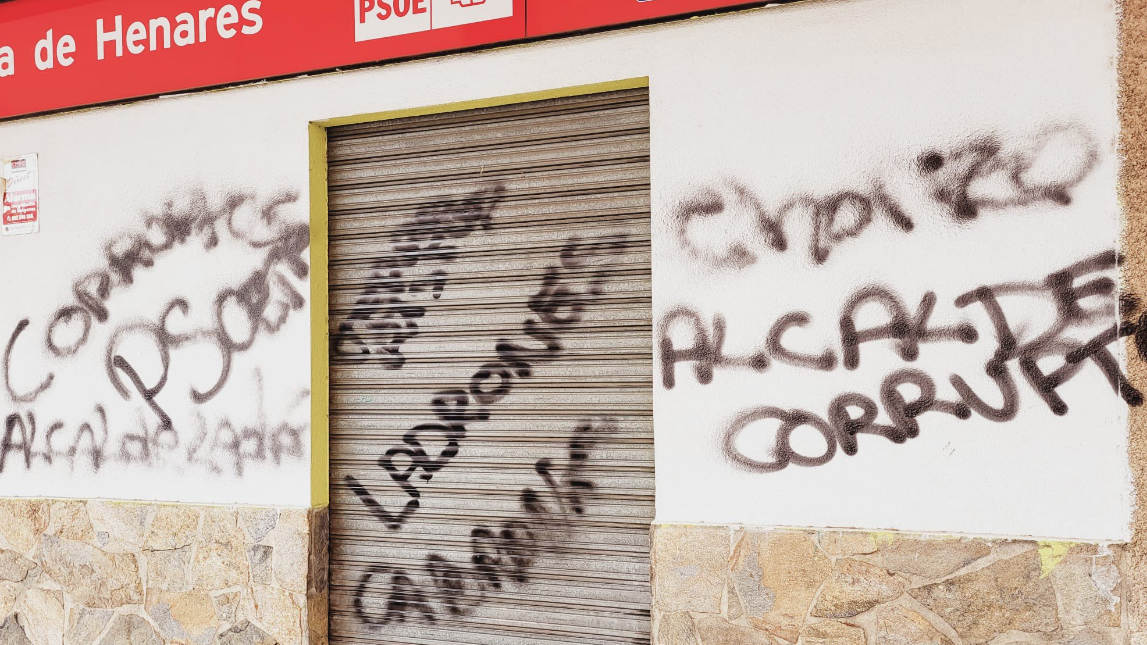 a de Henares
PSOE
CORRUPTOS
PSOE
ALCALDE
LADRONES
CHORIZO
ALCALDE
CORRUPT